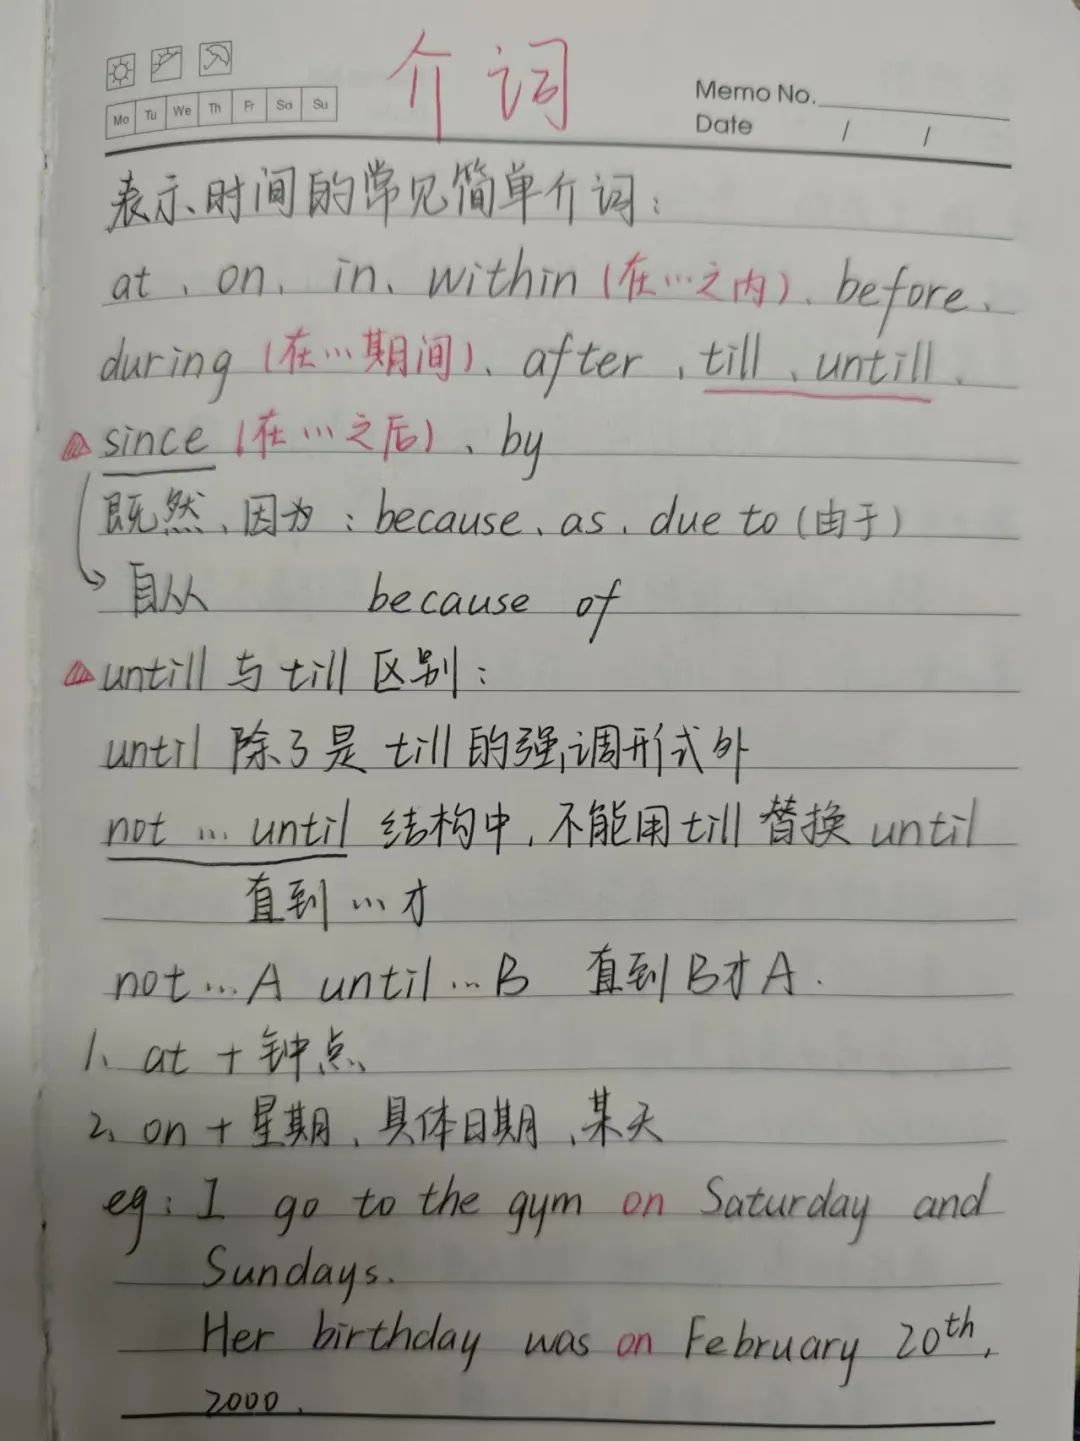 介词
Mo Tu We Th Fr Sa Su
Memo No.
Date / /
表示时间的常见简单介词:
at、on、in、within(在…之内)、before、
during(在…期间)、after、till、untill、
since(在…之后)、by
既然、因为:because、as、due to(由于)
自从 because of
untill与till区别:
until除了是till的强调形式外
not … until结构中,不能用till替换until
直到…才
not…A until…B 直到B才A.
1、at+钟点
2、on+星期、具体日期、某天
eg: I go to the gym on Saturday and
Sundays.
Her birthday was on February 20th,
2000.